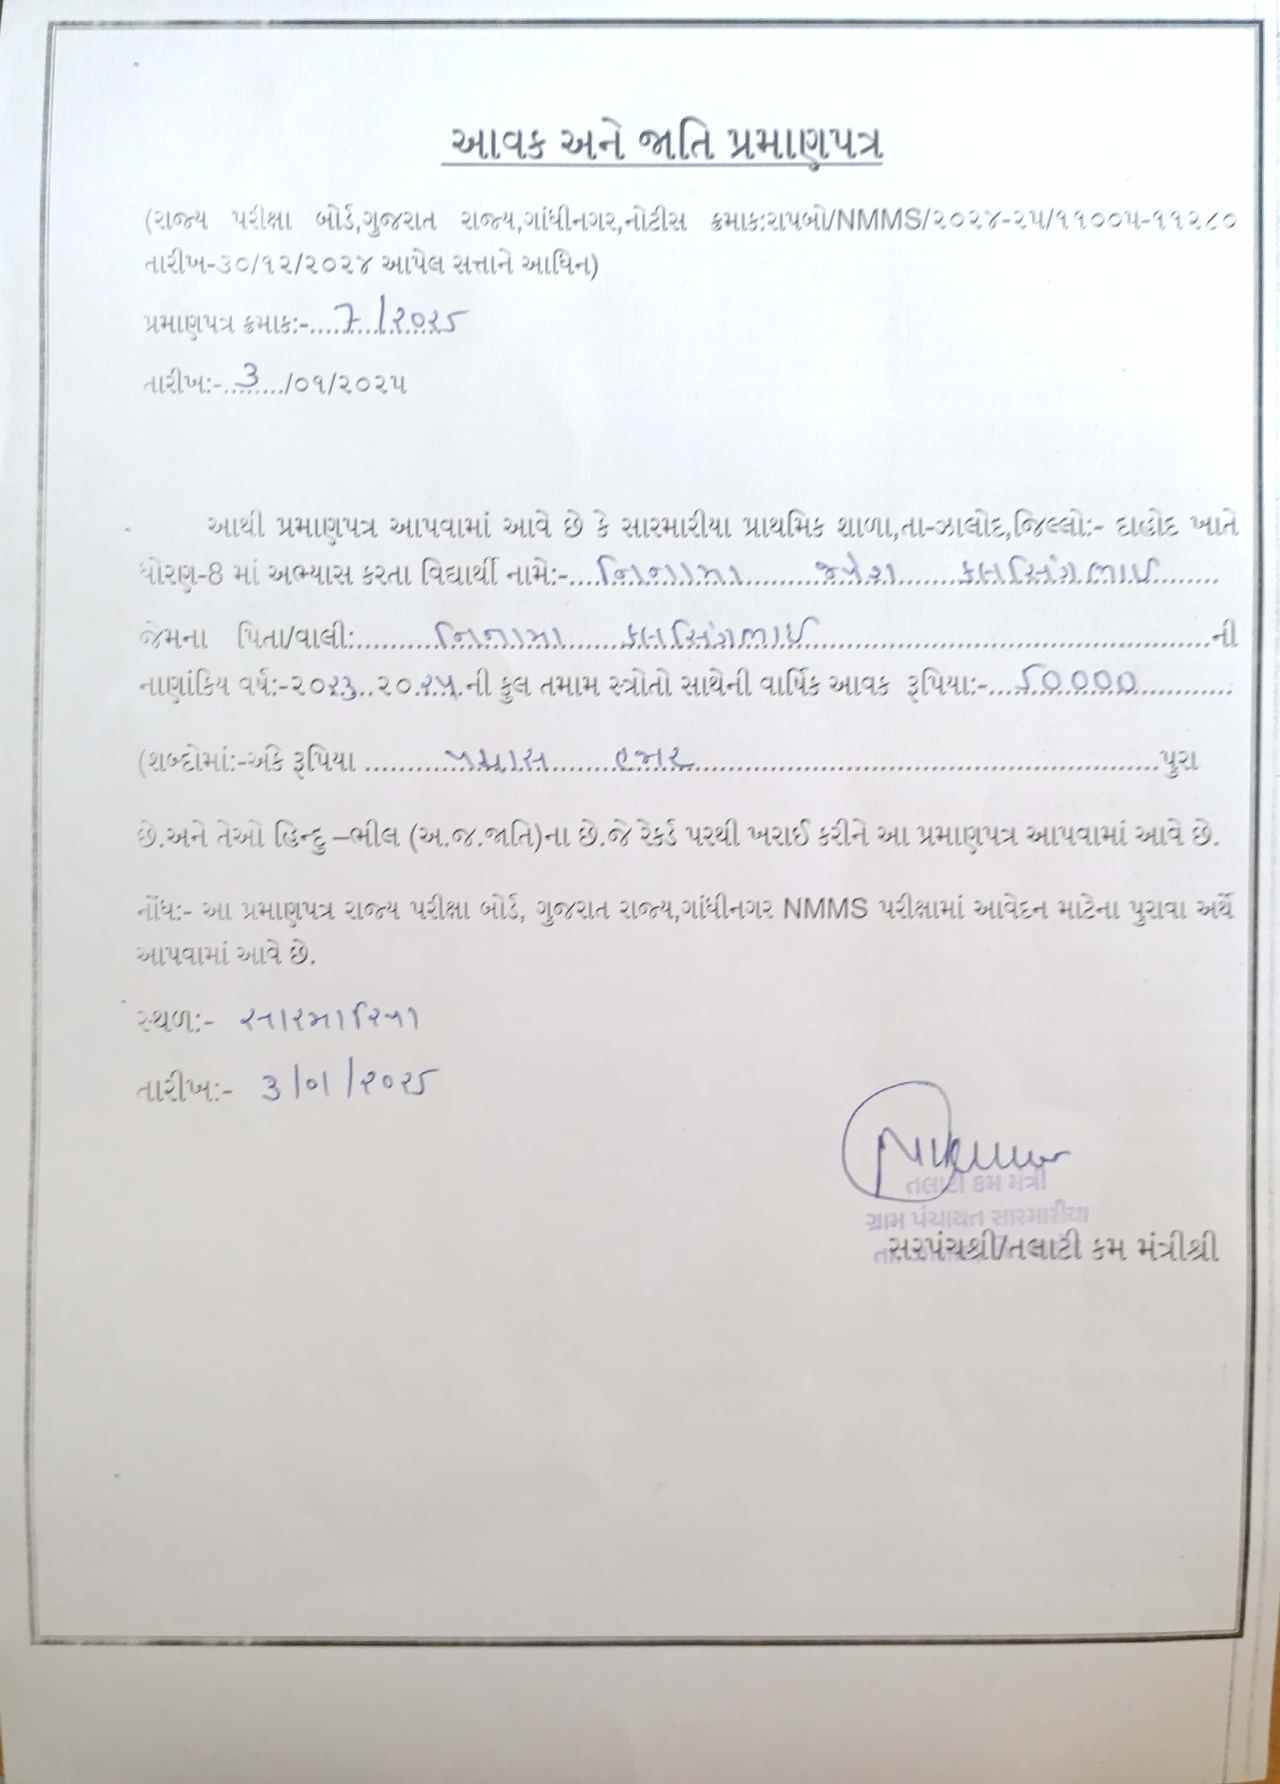 આવક અને જાતિ પ્રમાણપત્ર
(રાજ્ય પરીક્ષા બોર્ડ,ગુજરાત રાજ્ય,ગાંધીનગર,નોટીસ ક્રમાક:રાપબો/NMMS/૨૦૨૪-૨૫/૧૧૦૦૫-૧૧૨૮૦
તારીખ-૩૦/૧૨/૨૦૨૪ આપેલ સત્તાને આધિન)
પ્રમાણપત્ર ક્રમાક:-....7./૨૦૨૫
તારીખ:-..3..../૦૧/૨૦૨૫
આથી પ્રમાણપત્ર આપવામાં આવે છે કે સારમારીયા પ્રાથમિક શાળા,તા-ઝાલોદ,જિલ્લો:- દાહોદ ખાતે
ધોરણ-8 માં અભ્યાસ કરતા વિદ્યાર્થી નામે:-...નિનામા........ કલસિંગભાઈ.......
જેમના પિતા/વાલી:.........નિનામા.....કલસિંગભાઈ..........ની
નાણાંકિય વર્ષ:-૨૦૨૩..૨૦.૨૫.ની કુલ તમામ સ્ત્રોતો સાથેની વાર્ષિક આવક રૂપિયા:-...૫૦૦૦૦..........
(શબ્દોમાં:-અંકે રૂપિયા ..........પચાસ........હજાર..........પુરા
છે.અને તેઓ હિન્દુ –ભીલ (અ.જ.જાતિ)ના છે.જે રેકર્ડ પરથી ખરાઈ કરીને આ પ્રમાણપત્ર આપવામાં આવે છે.
નોંધ:- આ પ્રમાણપત્ર રાજ્ય પરીક્ષા બોર્ડ, ગુજરાત રાજ્ય,ગાંધીનગર NMMS પરીક્ષામાં આવેદન માટેના પુરાવા અર્થે
આપવામાં આવે છે.
સ્થળ:- સારમારિયા
તારીખ:- 3/૦૧/૨૦૨૫
તલાટી કમ મંત્રી
ગ્રામ પંચાયત સારમારીયા
સરપંચશ્રી/તલાટી કમ મંત્રીશ્રી